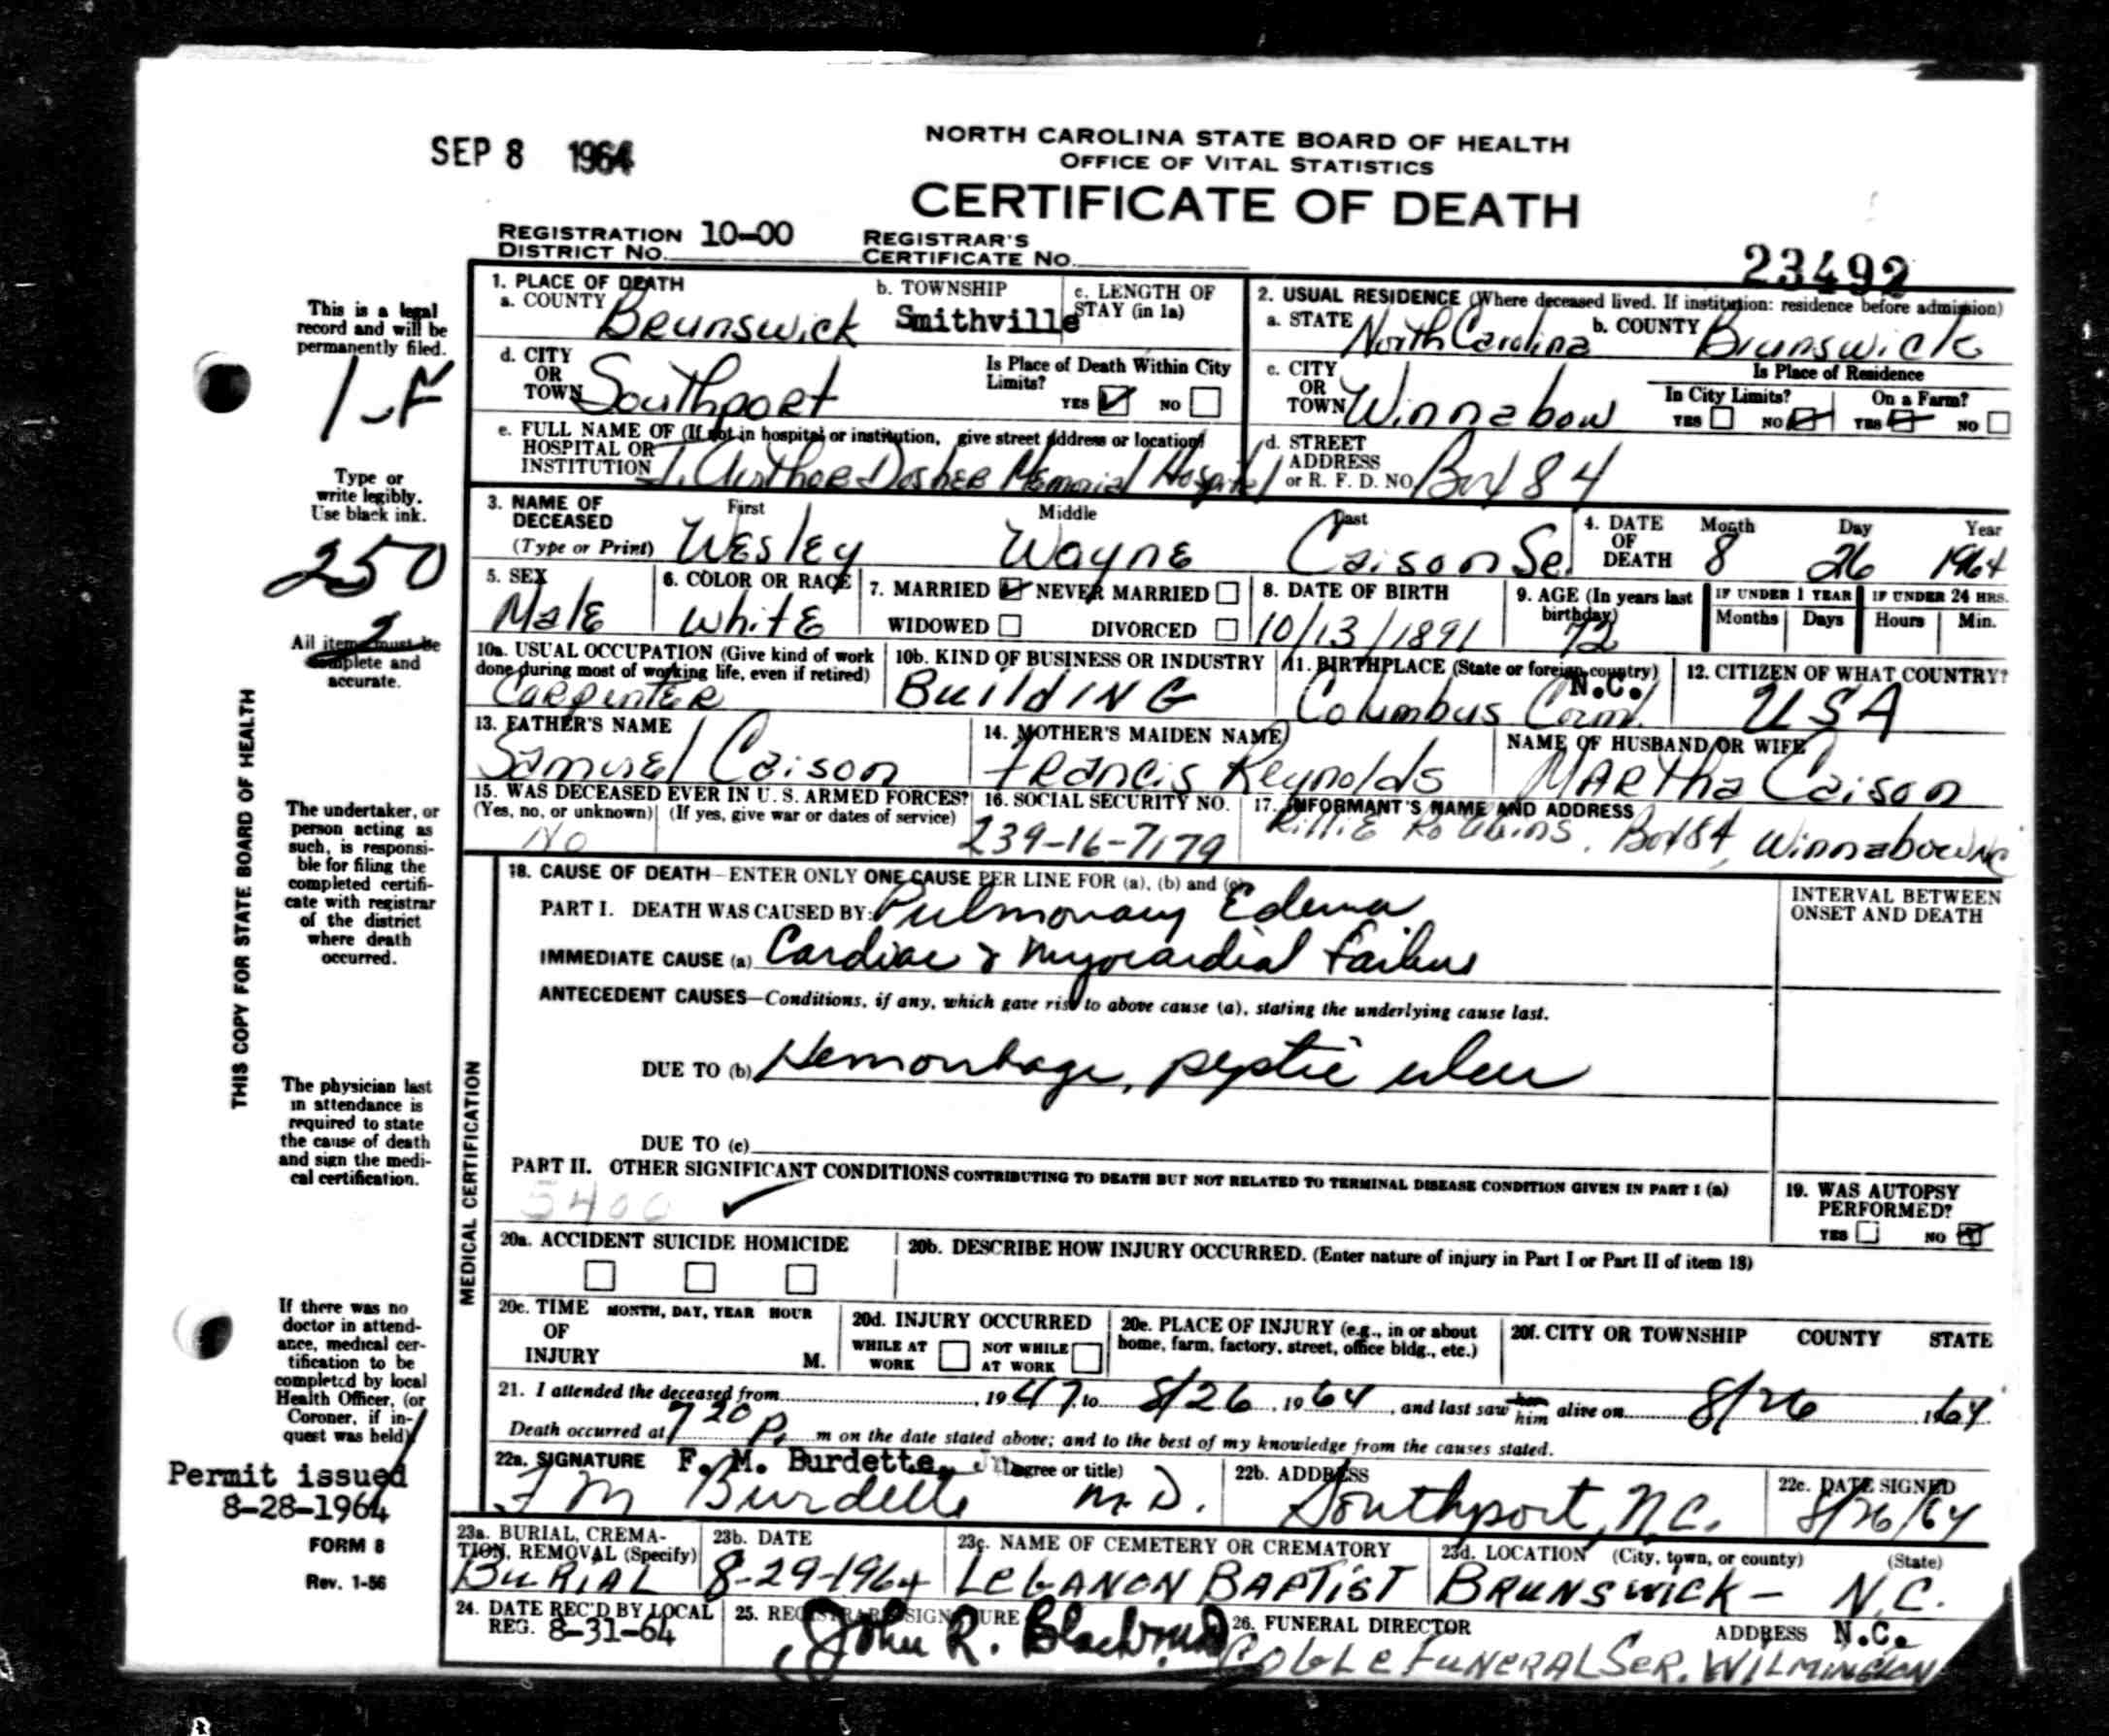 SEP 8 1964
NORTH CAROLINA STATE BOARD OF HEALTH
OFFICE OF VITAL STATISTICS
CERTIFICATE OF DEATH
REGISTRATION DISTRICT NO. 10-00
REGISTRAR'S CERTIFICATE NO.
23492
This is a legal
record and will be
permanently filed.
Type or
write legibly.
Use black ink.
250
2
All items must be
complete and
accurate.
THIS COPY FOR STATE BOARD OF HEALTH
The undertaker, or
person acting as
such, is responsi-
ble for filing the
completed certifi-
cate with registrar
of the district
where death
occurred.
The physician last
in attendance is
required to state
the cause of death
and sign the medi-
cal certification.
If there was no
doctor in attend-
ance, medical cer-
tification to be
completed by local
Health Officer, (or
Coroner, if in-
quest was held)
Permit issued
8-28-1964
FORM 8
Rev. 1-56
1. PLACE OF DEATH
a. COUNTY Brunswick
b. TOWNSHIP Smithville
c. LENGTH OF STAY (in 1a)
2. USUAL RESIDENCE (Where deceased lived. If institution: residence before admission)
a. STATE North Carolina b. COUNTY Brunswick
d. CITY OR TOWN Southport
Is Place of Death Within City Limits? YES NO
c. CITY OR TOWN Winnabow
Is Place of Residence
In City Limits? YES NO
On a Farm? YES NO
e. FULL NAME OF (If not in hospital or institution, give street address or location)
HOSPITAL OR INSTITUTION J. Arthor Dosher Memorial Hospital
d. STREET ADDRESS or R. F. D. NO. Box 84
3. NAME OF DECEASED (Type or Print)
First Middle Last
Wesley Wayne Caison Sr.
4. DATE OF DEATH Month Day Year
8 26 1964
5. SEX Male
6. COLOR OR RACE White
7. MARRIED NEVER MARRIED
WIDOWED DIVORCED
8. DATE OF BIRTH 10/13/1891
9. AGE (In years last birthday) 72
IF UNDER 1 YEAR Months Days
IF UNDER 24 HRS. Hours Min.
10a. USUAL OCCUPATION (Give kind of work done during most of working life, even if retired)
Carpenter
10b. KIND OF BUSINESS OR INDUSTRY
Building
11. BIRTHPLACE (State or foreign country)
Columbus N.C.
12. CITIZEN OF WHAT COUNTRY?
USA
13. FATHER'S NAME
Samuel Caison
14. MOTHER'S MAIDEN NAME
Francis Reynolds
NAME OF HUSBAND OR WIFE
Martha Caison
15. WAS DECEASED EVER IN U. S. ARMED FORCES?
(Yes, no, or unknown) (If yes, give war or dates of service)
No
16. SOCIAL SECURITY NO.
239-16-7179
17. INFORMANT'S NAME AND ADDRESS
Robbins, Box 84, Winnabow NC
MEDICAL CERTIFICATION
18. CAUSE OF DEATH—ENTER ONLY ONE CAUSE PER LINE FOR (a), (b) and (c)
INTERVAL BETWEEN ONSET AND DEATH
PART I. DEATH WAS CAUSED BY: Pulmonary Edema
IMMEDIATE CAUSE (a) Cardiac & Myocardial Failure
ANTECEDENT CAUSES—Conditions, if any, which gave rise to above cause (a), stating the underlying cause last.
DUE TO (b) Hemorrhage, peptic ulcer
DUE TO (c)
PART II. OTHER SIGNIFICANT CONDITIONS CONTRIBUTING TO DEATH BUT NOT RELATED TO TERMINAL DISEASE CONDITION GIVEN IN PART I (a)
5400
19. WAS AUTOPSY PERFORMED?
YES NO
20a. ACCIDENT SUICIDE HOMICIDE
20b. DESCRIBE HOW INJURY OCCURRED. (Enter nature of injury in Part I or Part II of item 18)
20c. TIME OF INJURY MONTH, DAY, YEAR HOUR M.
20d. INJURY OCCURRED
WHILE AT WORK NOT WHILE AT WORK
20e. PLACE OF INJURY (e.g., in or about home, farm, factory, street, office bldg., etc.)
20f. CITY OR TOWNSHIP COUNTY STATE
21. I attended the deceased from 1947, to 8/26, 1964, and last saw her him alive on 8/26 1964.
Death occurred at 7 20 P. m on the date stated above; and to the best of my knowledge from the causes stated.
22a. SIGNATURE F. M. Burdette, Jr. (Degree or title)
F M Burdette M.D.
22b. ADDRESS
Southport, N.C.
22c. DATE SIGNED
8/26/64
23a. BURIAL, CREMATION, REMOVAL (Specify)
Burial
23b. DATE
8-29-1964
23c. NAME OF CEMETERY OR CREMATORY
Lebanon Baptist
23d. LOCATION (City, town, or county) (State)
Brunswick - N.C.
24. DATE REC'D BY LOCAL REG. 8-31-64
25. REGISTRAR'S SIGNATURE
John R.
26. FUNERAL DIRECTOR ADDRESS N.C.
Coble Funeral Ser. Wilmington